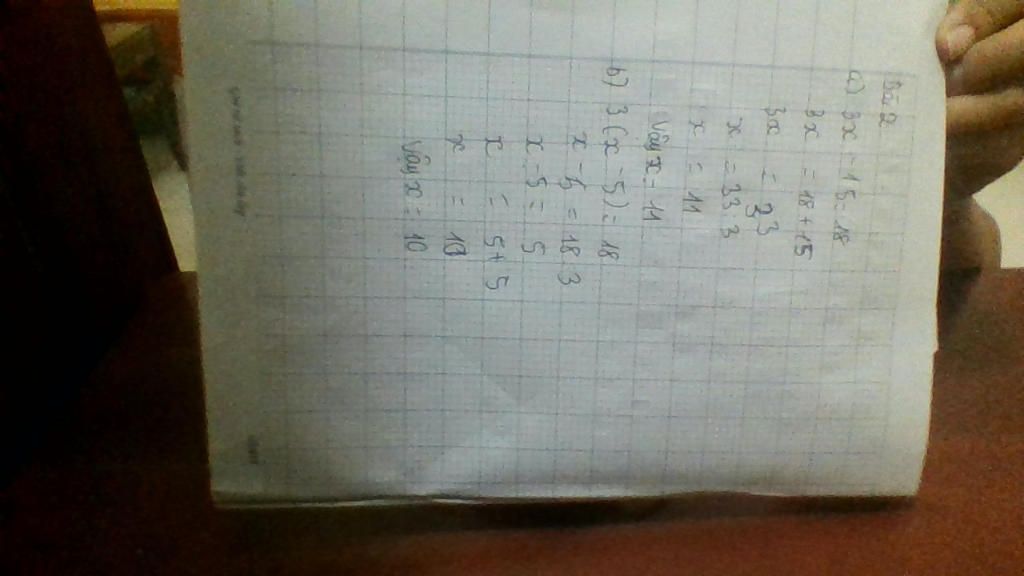 Bài 2
a) 3x - 15 = 18
3x = 18 + 15
3x = 33
x = 33 : 3
x = 11
Vậy x = 11
b) 3 (x - 5) = 18
x - 5 = 18 : 3
x - 5 = 5
x = 5 + 5
x = 10
Vậy x = 10